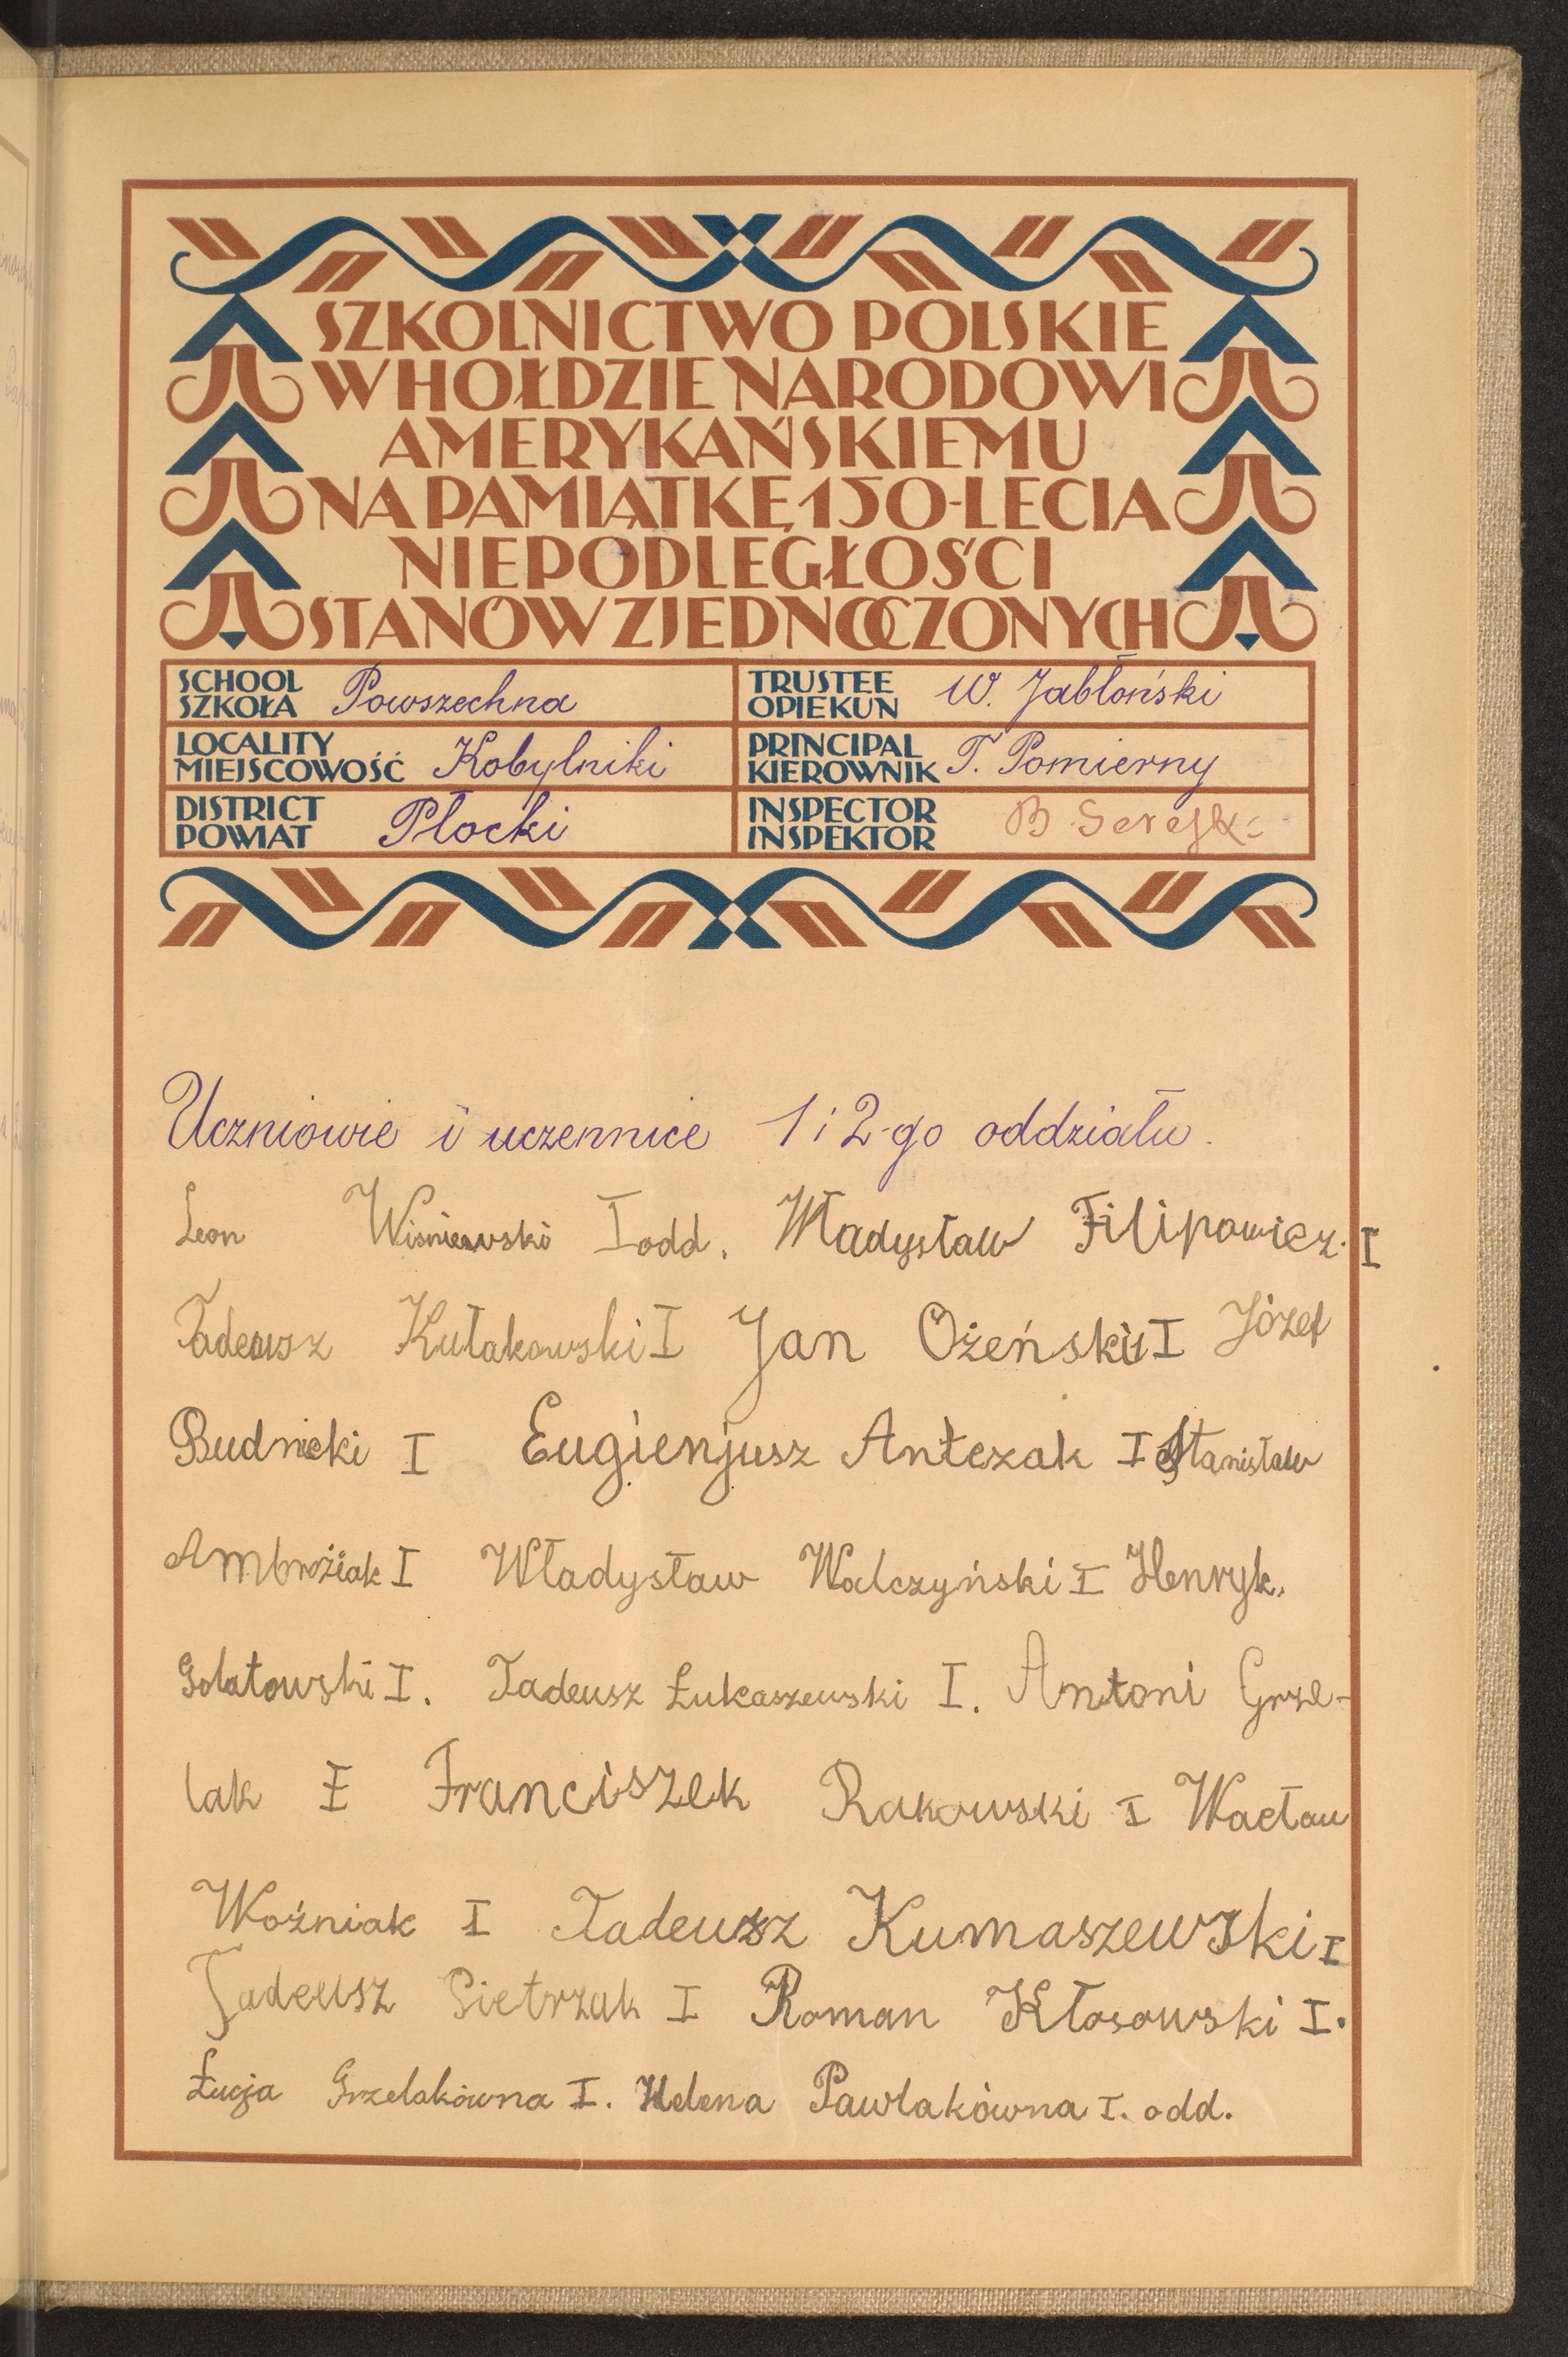 SZKOLNICTWO POLSKIE
W HOŁDZIE NARODOWI
AMERYKAŃSKIEMU
NA PAMIĄTKĘ 150-LECIA
NIEPODLEGŁOŚCI
STANÓW ZJEDNOCZONYCH
SCHOOL
SZKOŁA Powszechna
TRUSTEE
OPIEKUN W. Jabłoński
LOCALITY
MIEJSCOWOŚĆ Kobylniki
PRINCIPAL
KIEROWNIK T. Pomierny
DISTRICT
POWIAT Płocki
INSPECTOR
INSPEKTOR B
Uczniowie i uczennice 1 i 2-go oddziału.
Leon Wiśniewski I odd. Władysław Filipowicz. I
Tadeusz Kułakowski I Jan Ożeński I Józef
Budnicki I Eugienjusz Antczak I Stanisław
Ambroziak I Władysław Walczyński I Henryk.
Golatowski I. Tadeusz Łukaszewski I. Antoni Grze-
lak I Franciszek Rakowski I Wacław
Woźniak I Tadeusz Kumaszewski I
Tadeusz Pietrzak I Roman Kłosowski I.
Łucja Grzelakówna I. Helena Pawlakówna I. odd.